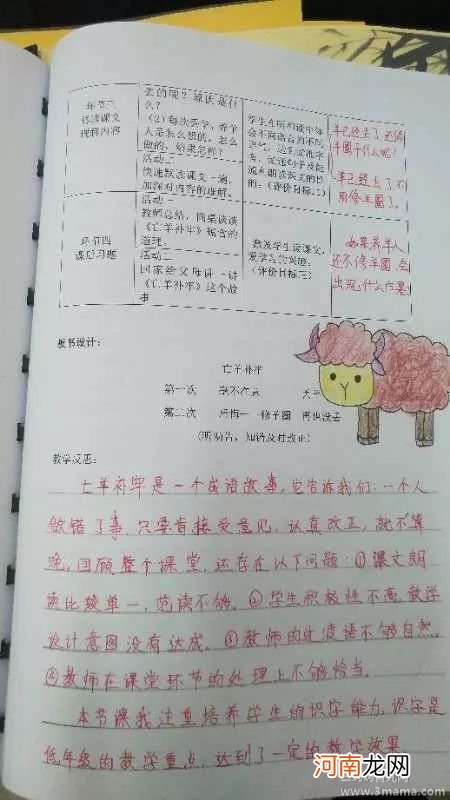 丢的呢？原因是什么？
（2）每次丢羊，养羊人是怎么想的，怎么做的，结果怎样？
活动二
快速默读课文一遍，加深对内容的理解。
环节三
课文
内容
羊已经丢了，还修羊圈干什么呢？
羊已经丢了，不用修羊圈了。
环节四
课后习题
活动一
教师总结，同桌谈谈《亡羊补牢》蕴含的道理。
活动二
回家给父母讲一讲《亡羊补牢》这个故事
激发学生读课文，爱学习的兴趣。
（评价目标三）
如果养羊人还不修羊圈，会出现什么后果
板书设计：
亡羊补牢
第一次
第二次
修羊圈 再也没丢
（听劝告，知错及时改正）
教学反思：
亡羊补牢是一个成语故事，它告诉我们：一个人
做错了事，只要肯接受意见，认真改正，就不算
晚。回顾整个课堂，还存在以下问题：①课文朗
读比较单一，范读不够。②学生积极性不高，教学
设计意图没有达成。③教师的过渡语不够自然。
④教师在课堂环节的处理上不够恰当。
本节课我注重培养学生的识字能力，识字是
低年级的教学重点，达到了一定的教学效果
河南龙网
www.3mama.com